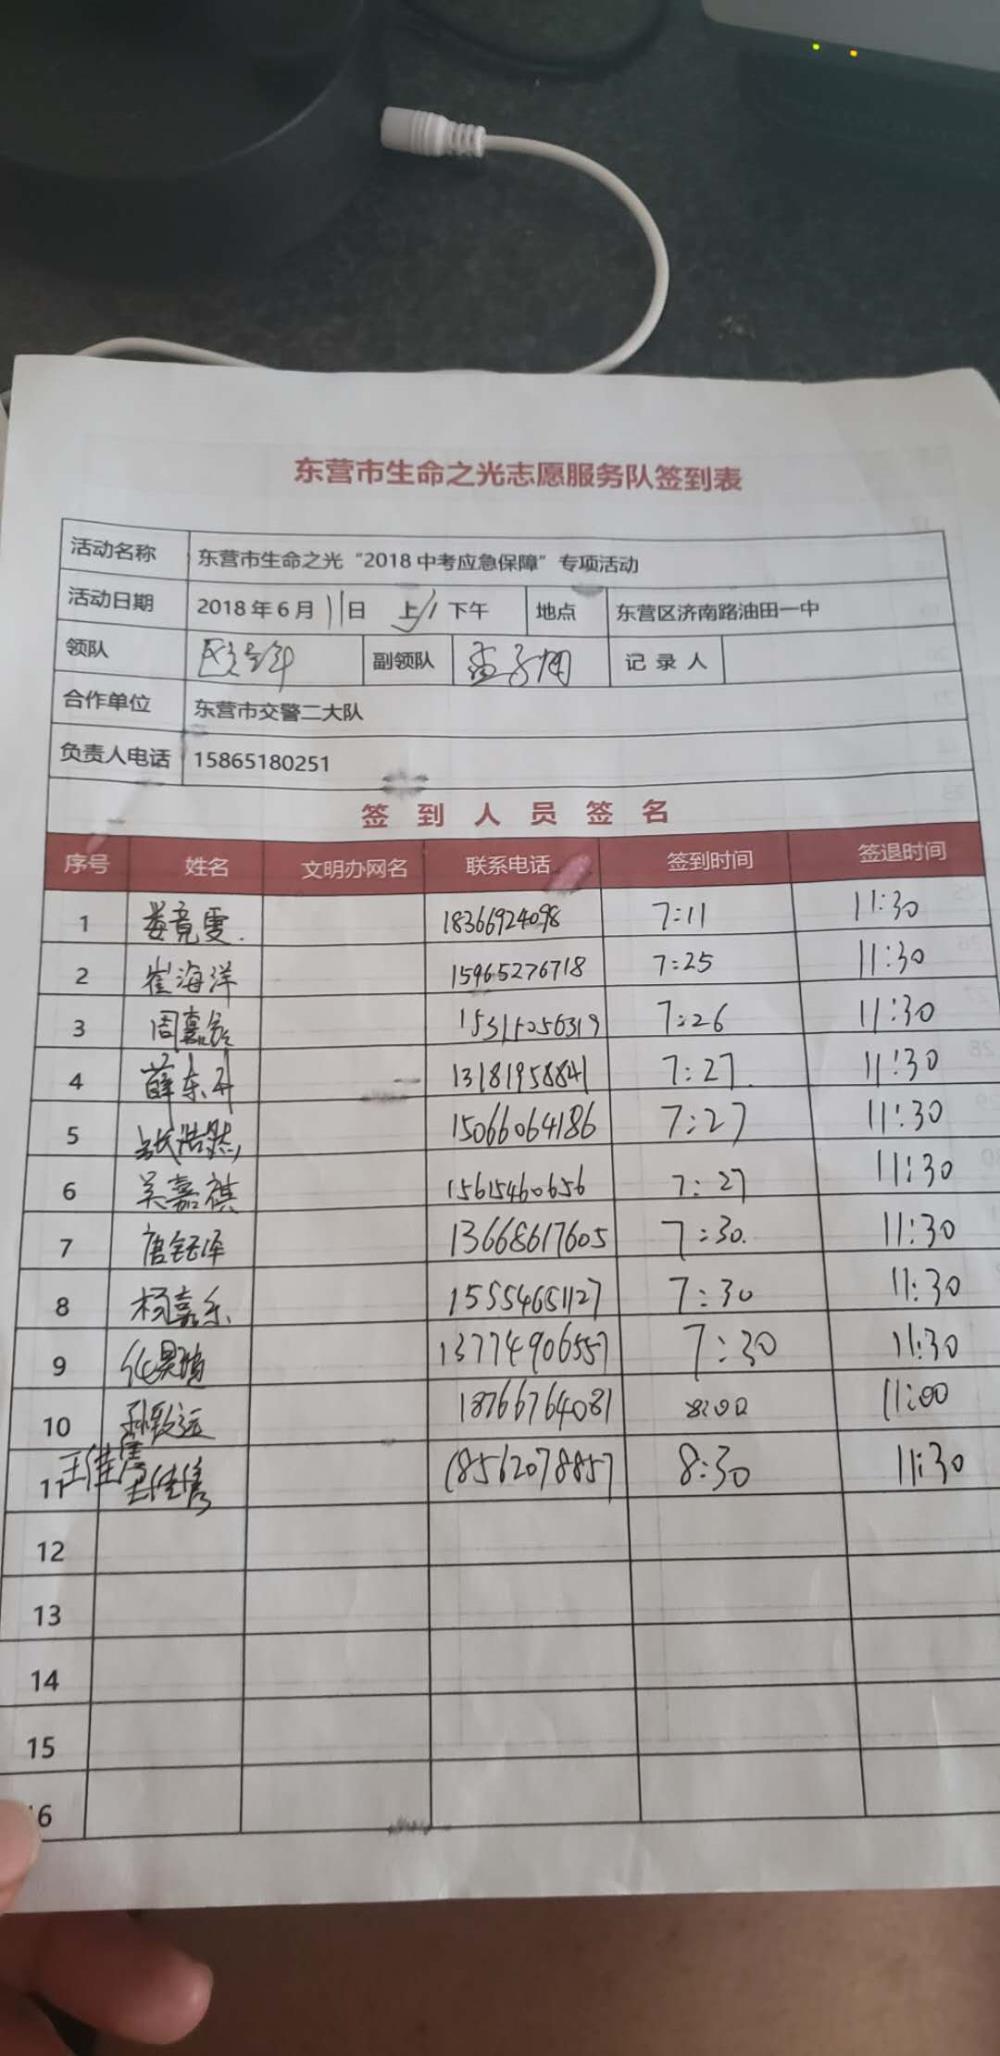 东营市生命之光志愿服务队签到表
活动名称 东营市生命之光“2018中考应急保障”专项活动
活动日期 2018年6月11日 上/下午 地点 东营区济南路油田一中
领队 副领队 孟子用 记录人
合作单位 东营市交警二大队
负责人电话 15865180251
签到人员签名
序号 姓名 文明办网名 联系电话 签到时间 签退时间
1 娄竟雯 18366924098 7:11 11:30
2 崔海洋 15965276718 7:25 11:30
3 周嘉 15315256319 7:26 11:30
4 薛东升 13181958841 7:27 11:30
5 张浩然 15066064186 7:27 11:30
6 吴嘉祺 15615460656 7:27 11:30
7 唐钰泽 13668617605 7:30 11:30
8 杨嘉乐 15554651127 7:30 11:30
9 13774906557 7:30 11:30
10 孙致远 18766764081 8:00 11:00
11 王佳隽 王佳隽 18562078857 8:30 11:30
12
13
14
15
16